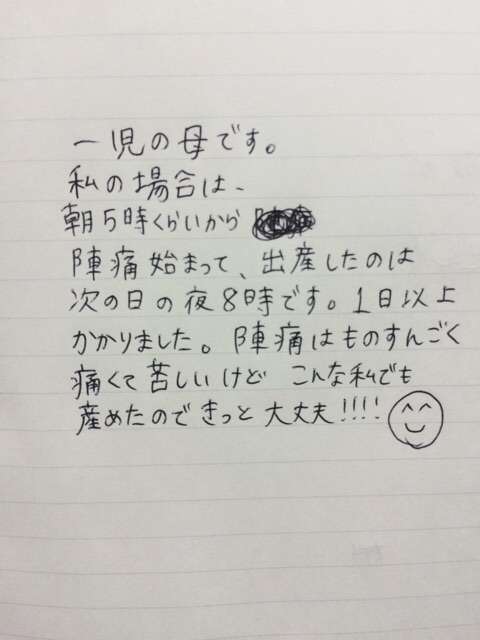 一児の母です。
私の場合は、
朝5時くらいから
陣痛始まって、出産したのは
次の日の夜8時です。1日以上
かかりました。陣痛はものすんごく
痛くて苦しいけど こんな私でも
産めたのできっと大丈夫!!!!